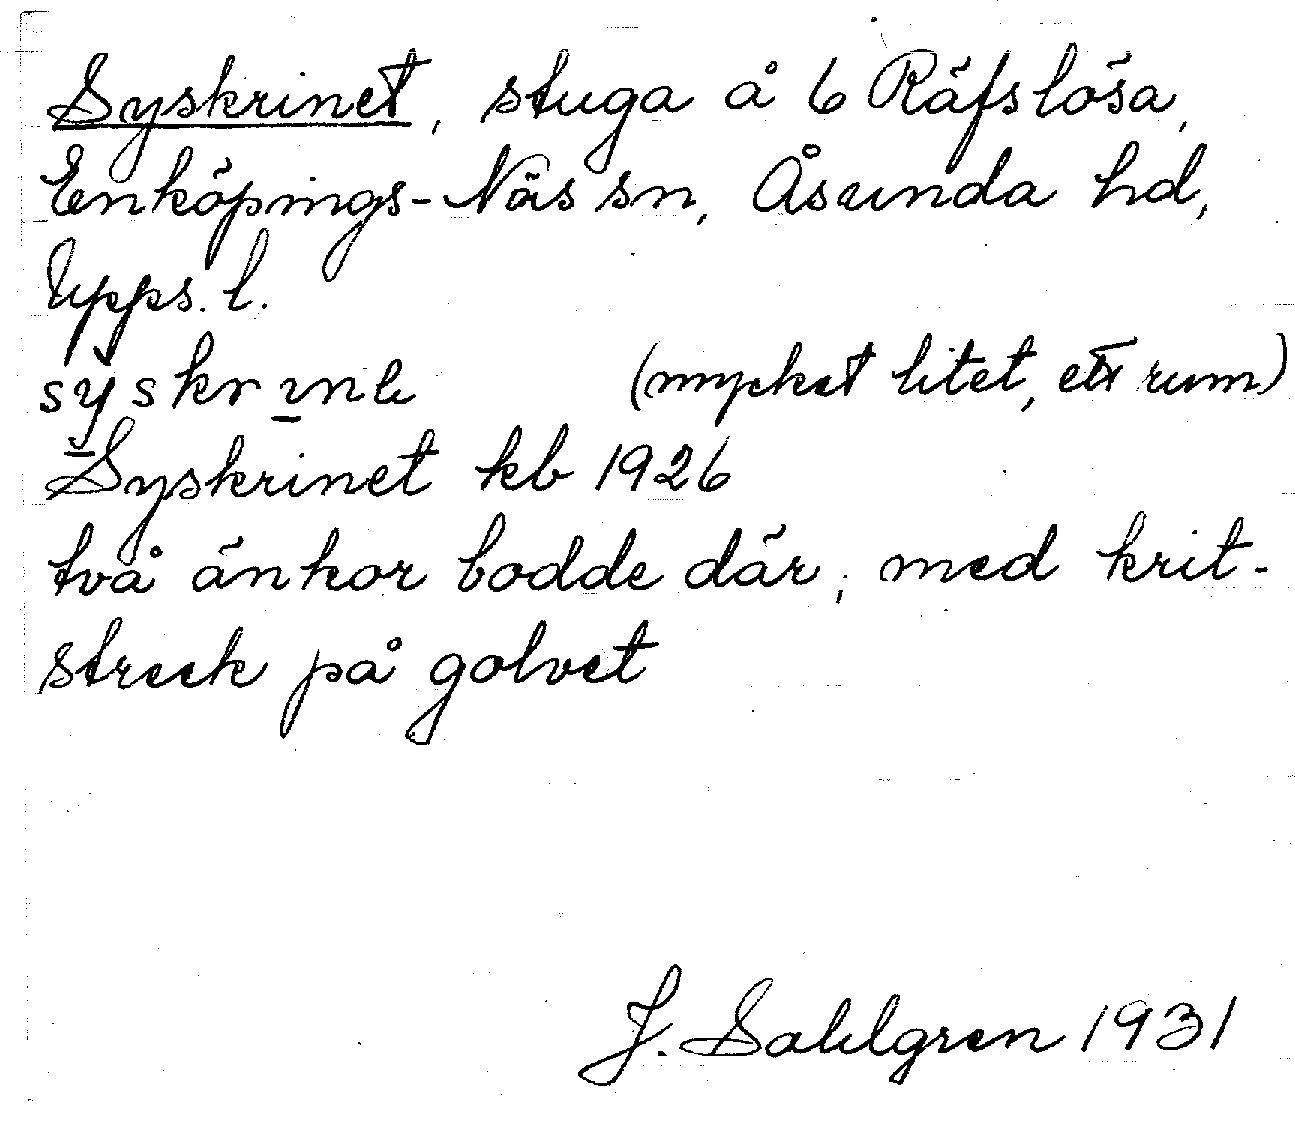 Syskrinet, stuga å 6 Räfslösa,
Enköpings-Näs sn, Åsunda hd,
Upps. l.
(mycket litet, ett rum)
Syskrinet kb 1926
två änkor bodde där, med krit-
streck på golvet
J. Sahlgren 1931